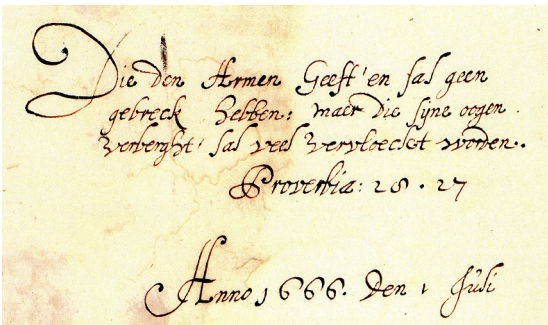 Die den Armen Geeft en sal geen
gebreck hebben: maer die sijne oogen
verberght sal veel vervloeckt worden.
Proverbia: 28 . 27
Anno 1666. Den 1 Juli